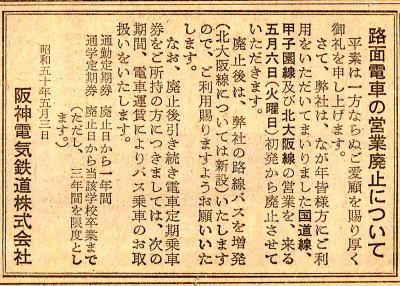 路面電車の営業廃止について
平素は一方ならぬご愛顧を賜り厚く
御礼を申し上げます。
さて、弊社は、なが年皆様方にご利
用をいただいてまいりました国道線、
甲子園線及び北大阪線の営業を、来る
五月六日(火曜日)初発から廃止させて
いただきます。
廃止後は、弊社の路線バスを増発
(北大阪線については新設)いたします
ので、ご利用賜りますようお願いいた
します。
なお、廃止後引き続き電車定期乗車
券をご所持の方につきましては、次の
期間、電車運賃によりバス乗車のお取
扱いをいたします。
通勤定期券 廃止日から一年間
通学定期券 廃止日から当該学校卒業まで
(ただし、三年間を限度とし
ます。)
昭和五十年五月三日
阪神電気鉄道株式会社